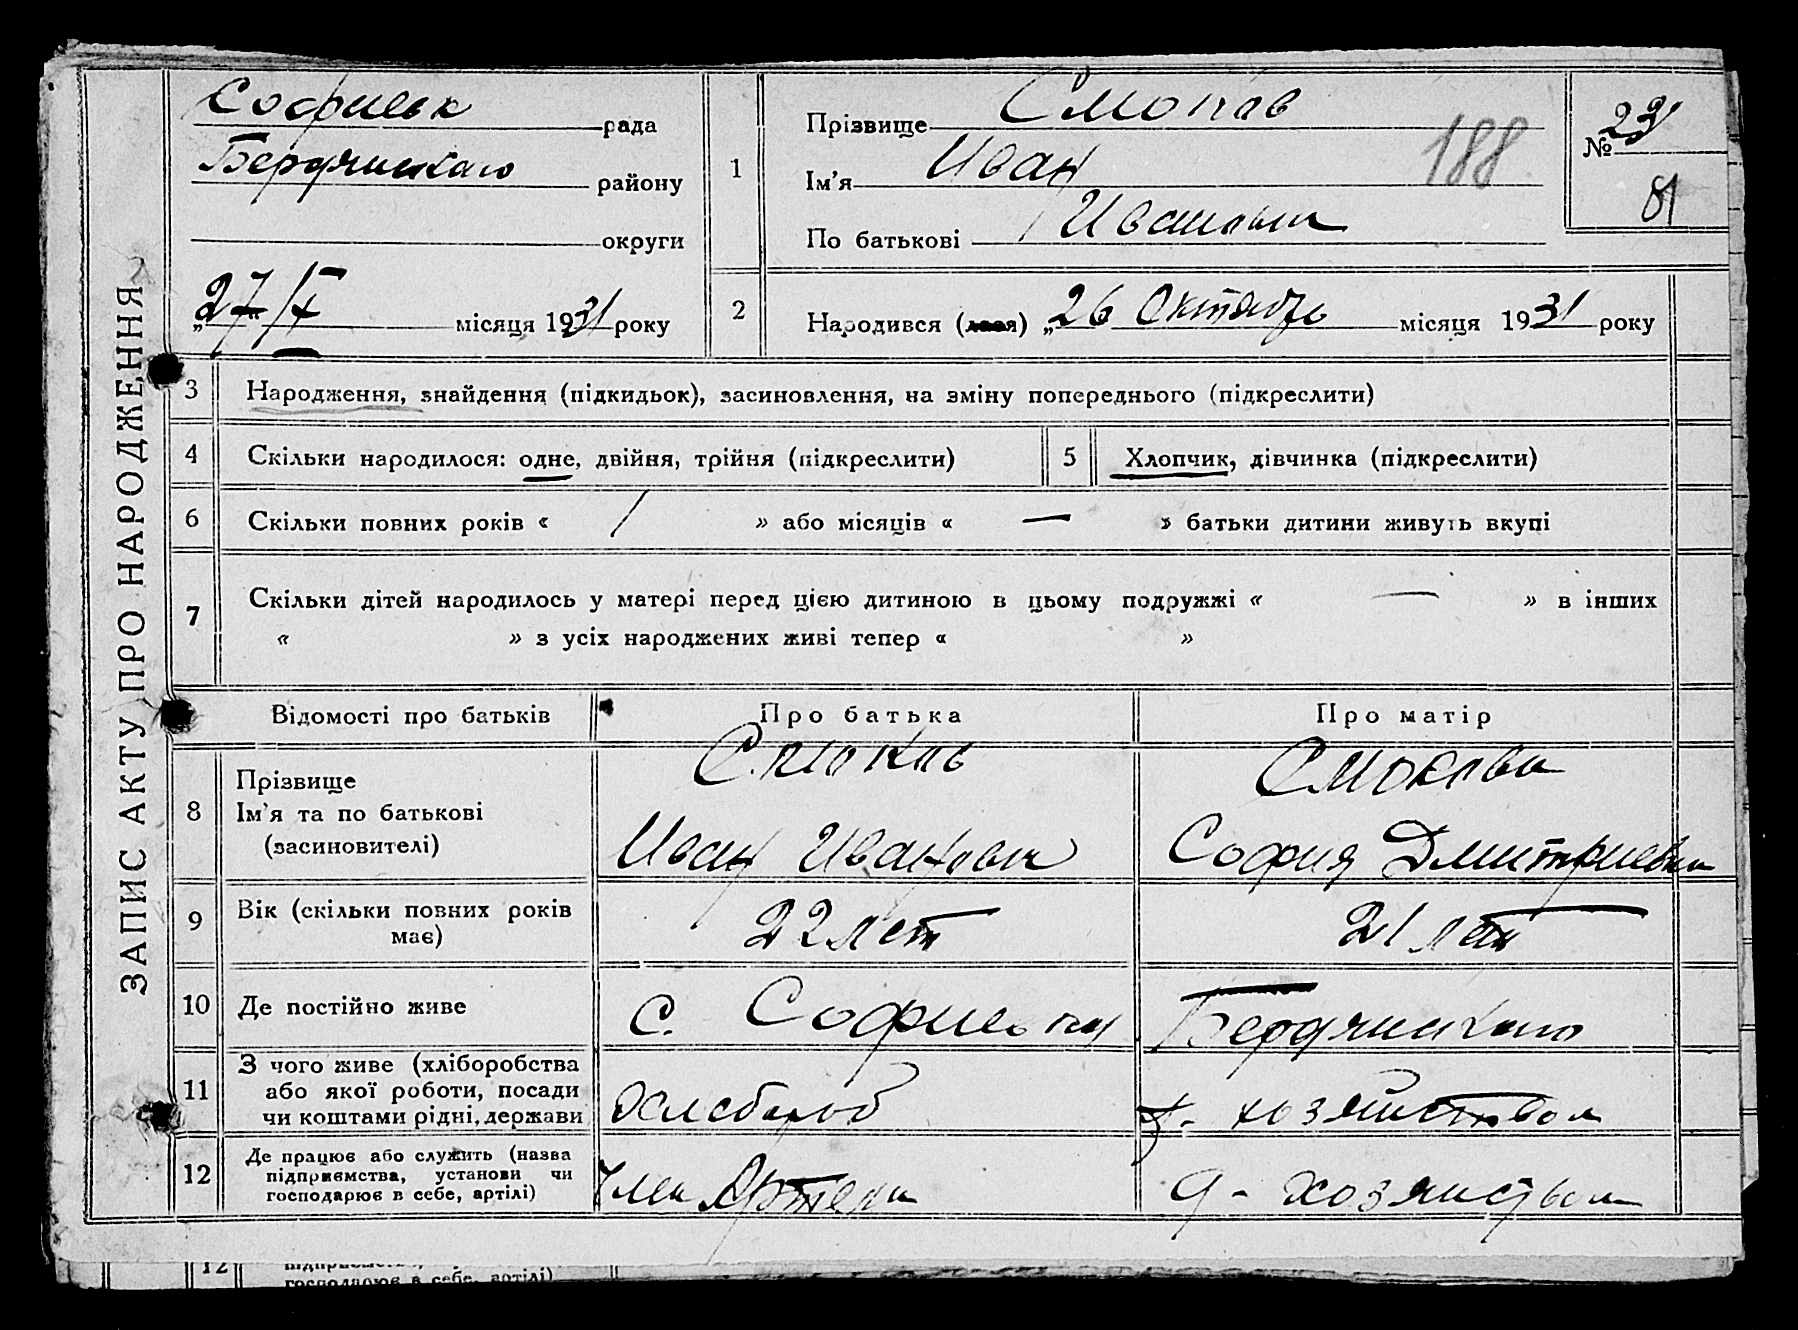 ЗАПИС АКТУ ПРО НАРОДЖЕННЯ
Софиевк рада
Бердянского району
округи
„27“ /X місяця 1931 року
1
Прізвище Смоков
Ім’я Иван
По батькові Иванович
188
№ 23
81
2
Народився (лася) „26 Октябр місяця 1931 року
3 Народження, знайдення (підкидьок), засиновлення, на зміну попереднього (підкреслити)
4 Скільки народилося: одне, двійня, трійня (підкреслити)
5 Хлопчик, дівчинка (підкреслити)
6 Скільки повних років « / » або місяців « — » батьки дитини живуть вкупі
7 Скільки дітей народилось у матері перед цією дитиною в цьому подружжі « — » в інших
« » з усіх народжених живі тепер « »
Відомості про батьків Про батька Про матір
8 Прізвище
Ім’я та по батькові
(засиновителі)
Смоков
Иван Иванович
Смокова
София Дмитриевна
9 Вік (скільки повних років
має)
22 лет
21 лет
10 Де постійно живе
с. Софиевка
Бердянского
11 З чого живе (хліборобства
або якої роботи, посади
чи коштами рідні, держави
хлебороб
хозяйством
12 Де працює або служить (назва
підприємства, установи чи
господарює в себе, артілі)
Член Артели
д-хозяйством
12
господарює в себе, артілі)